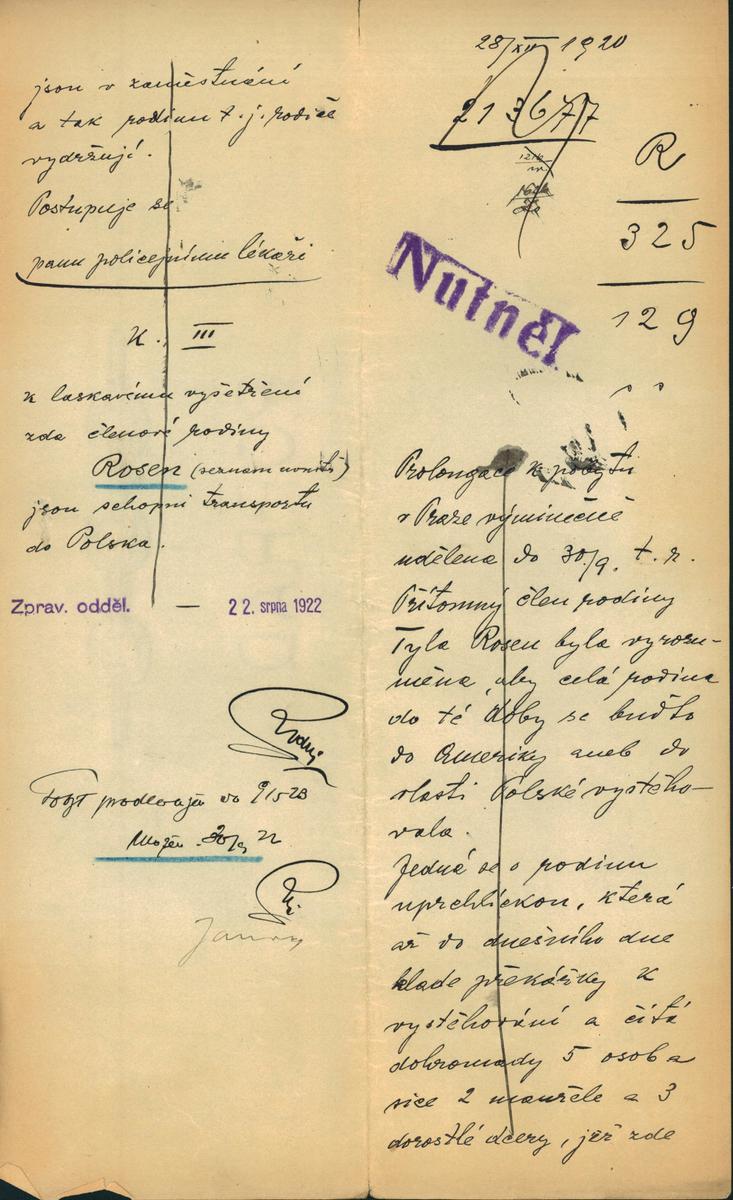 28/XII 1920
213677
R
325
129
Nutné!
Prolongace k pobytu
v Praze výminečně
udělena do 30/9. t. r.
Přítomný člen rodiny
Tyla Rosen byla vyrozu-
měna, aby celá rodina
do té doby se buďto
do Ameriky aneb do
vlasti Polské vystěho-
vala.
Jedná se o rodinu
uprchlickou, která
až do dnešního dne
klade překážky k
vystěhování a čítá
dohromady 5 osob a
sice 2 manžele a 3
dorostlé dcery, jež zde
json v zaměstnání
a tak rodinu t. j. rodiče
vydržují.
Postupuje se
panu policejnímu lékaři
K. III
k laskavému vyšetření
zda členové rodiny
Rosen (seznam uvnitř)
jsou schopni transportu
do Polska.
Zprav. odděl. — 22. srpna 1922
do 9/5 23
30/9 22